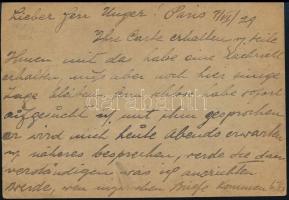 Lieber Herr Unger! Paris 7/VII/29
Ihre Carte erhalten u. teile
Ihnen mit das habe eine Nachricht
erhalten, muss aber noch hier einige
Tage bleiben, habe sofort
aufgesucht u. mit ihm gesprochen
er wird mich heute Abends erwarten
u. näheres besprechen, werde Sie dann
verständigen was ich ausrichten
werde, wenn Briefe kommen